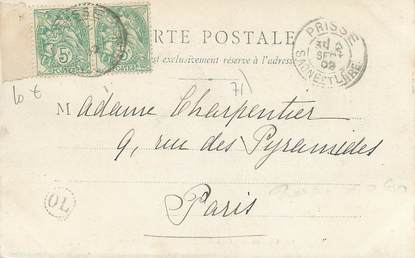 CARTE POSTALE
est exclusivement réservé à l'adresse
5 5
PRISSÉ
SEPT
02
SAONE-ET-LOIRE
10 €
71
Madame Charpentier
9, rue des Pyramides
Paris
OL